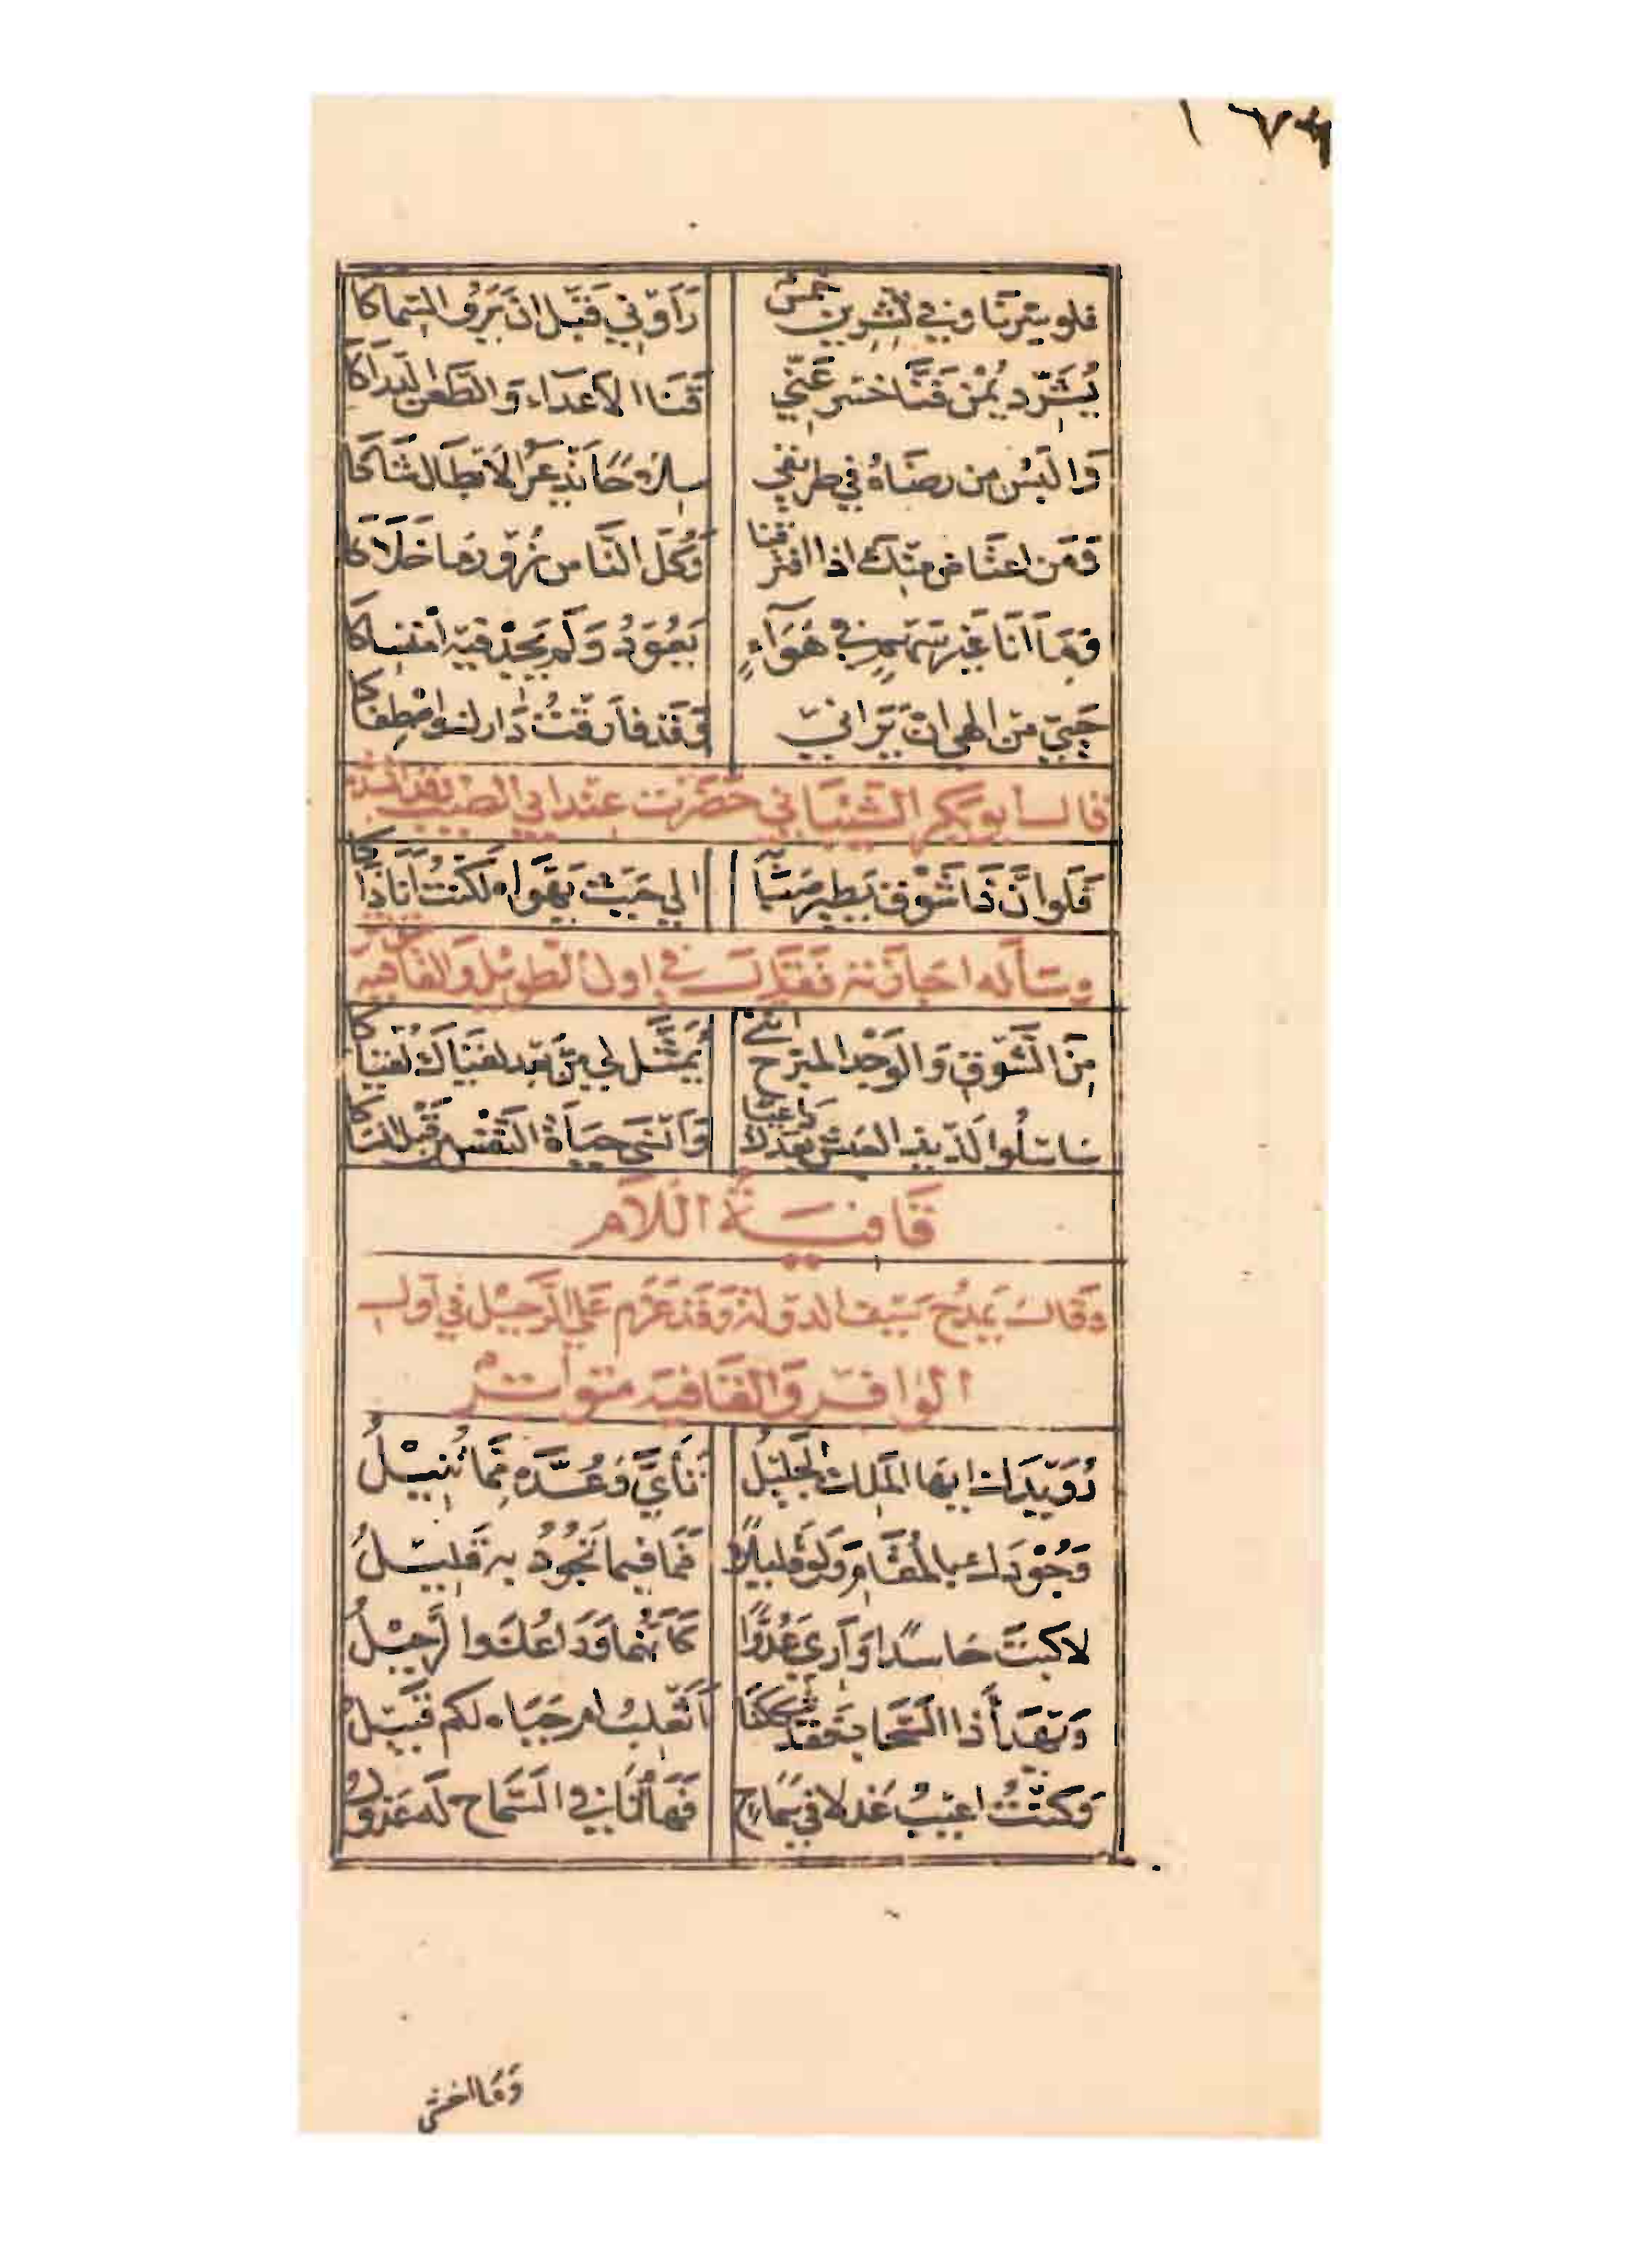 ١٦٧
فلو سِرنَا وفي تشرين خمس رَأَوْني قَبَل ان يَرَوُا السِّماكا
يُشَرّد يُمْن فَنَّاخسر عَنّي قَنَا الاَعدَآء وَ الطَّعن الدراكا
وَالبَسُ من رضَاهُ في طريقي سِلاحًا يَذعَرُ الابطال شَاكا
وَمَن اعتَاض منك اذا افترقنا وَكل النَّاس زُورٌ ما خَلَاكَا
وَمَا اَنَا غَير سَهم في هَوَآءٍ يَعُودُ وَلَم يَجِدْ فيه امتسَاكا
حَيِيّ من الهي ان يَرَاني وَ قَد فَارَقتُ دَارك وَاصْطفاكا
قال ابو بَكر الشَّيبَاني حَضَرت عندابي الطيب
فَلَو اَنَّ ذَا شَوْق يَطير صَبَا الي حَيث يَهوَاه لَكنتُ اَنا ذَاكا
وسَأله اجازته فقال في اول الطويل والقافية
مِنَ الشَّوق وَ الوَجْد المبَرّح انني يُمَثَّل لي مِن بَعد لقيَاك لُقيَاكا
سَاسْلُوا لَذيذ العيش بَعدك دَاعيًا وَاَنْسَي حيَاةَ النَّفسِ قَبْل
قَافيَةُ اللاَّم
وَقالَ يَمدَحُ سَيف الدولة وَقَد عَزَم عَلي الرَّحيْل في اَول
الوافر وَالقَافية متواتر
رُوَيدَك ايها المَلك الجَليْلُ تَأَيَّ وَعُدَّه مِمَّا تُنِيْلُ
وَجُوْدَك بالمُقَام وَلو قليلًا فَمَا فيما تَجُودُ به قَليلُ
لاكبتَ حَاسدًا وَاَري عَدُوًّا كَأنَّهما وَدَاعُك وا لرَّحيْلُ
وَيَهدَأ ذا السَّحاب فقد شككنَا اَتَغلبُ ام حَيَاه لكم قَبيلُ
وَكنتُ اعيبُ عَذلا في سَمَاحٍ فَهَا اَنَا في السَّماح لَه عَذولُ
وَمَا اخشى